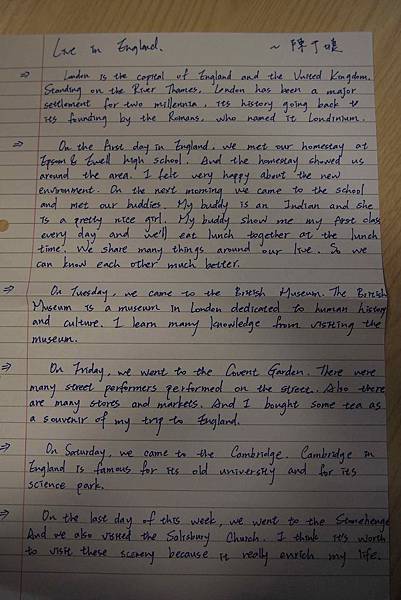 Live in England. ~ 陳丁嬑
⇒ London is the capital of England and the United Kingdom.
Standing on the River Thames, London has been a major
settlement for two millennia, its history going back to
its founding by the Romans, who named it Londinium.
⇒ On the first day in England, we met our homestay at
Epsom & Ewell high school. And the homestay showed us
around the area. I felt very happy about the new
environment. On the next morning we came to the school
and met our buddies. My buddy is an Indian and she
is a pretty nice girl. My buddy show me my first class
every day and we'll eat lunch together at the lunch
time. We share many things around our live. So we
can know each other much better.
⇒ On Tuesday, we came to the British Museum. The British
Museum is a museum in London dedicated to human history
and culture. I learn many knowledge from visiting the
museum.
⇒ On Friday, we went to the Covent Garden. There were
many street performers performed on the street. Also there
are many stores and markets. And I bought some tea as
a souvenir of my trip to England.
⇒ On Saturday, we came to the Cambridge. Cambridge in
England is famous for its old university and for its
science park.
⇒ On the last day of this week, we went to the Stonehenge
And we also visited the Salisbury Church. I think it's worth
to visit these scenery because it really enrich my life.